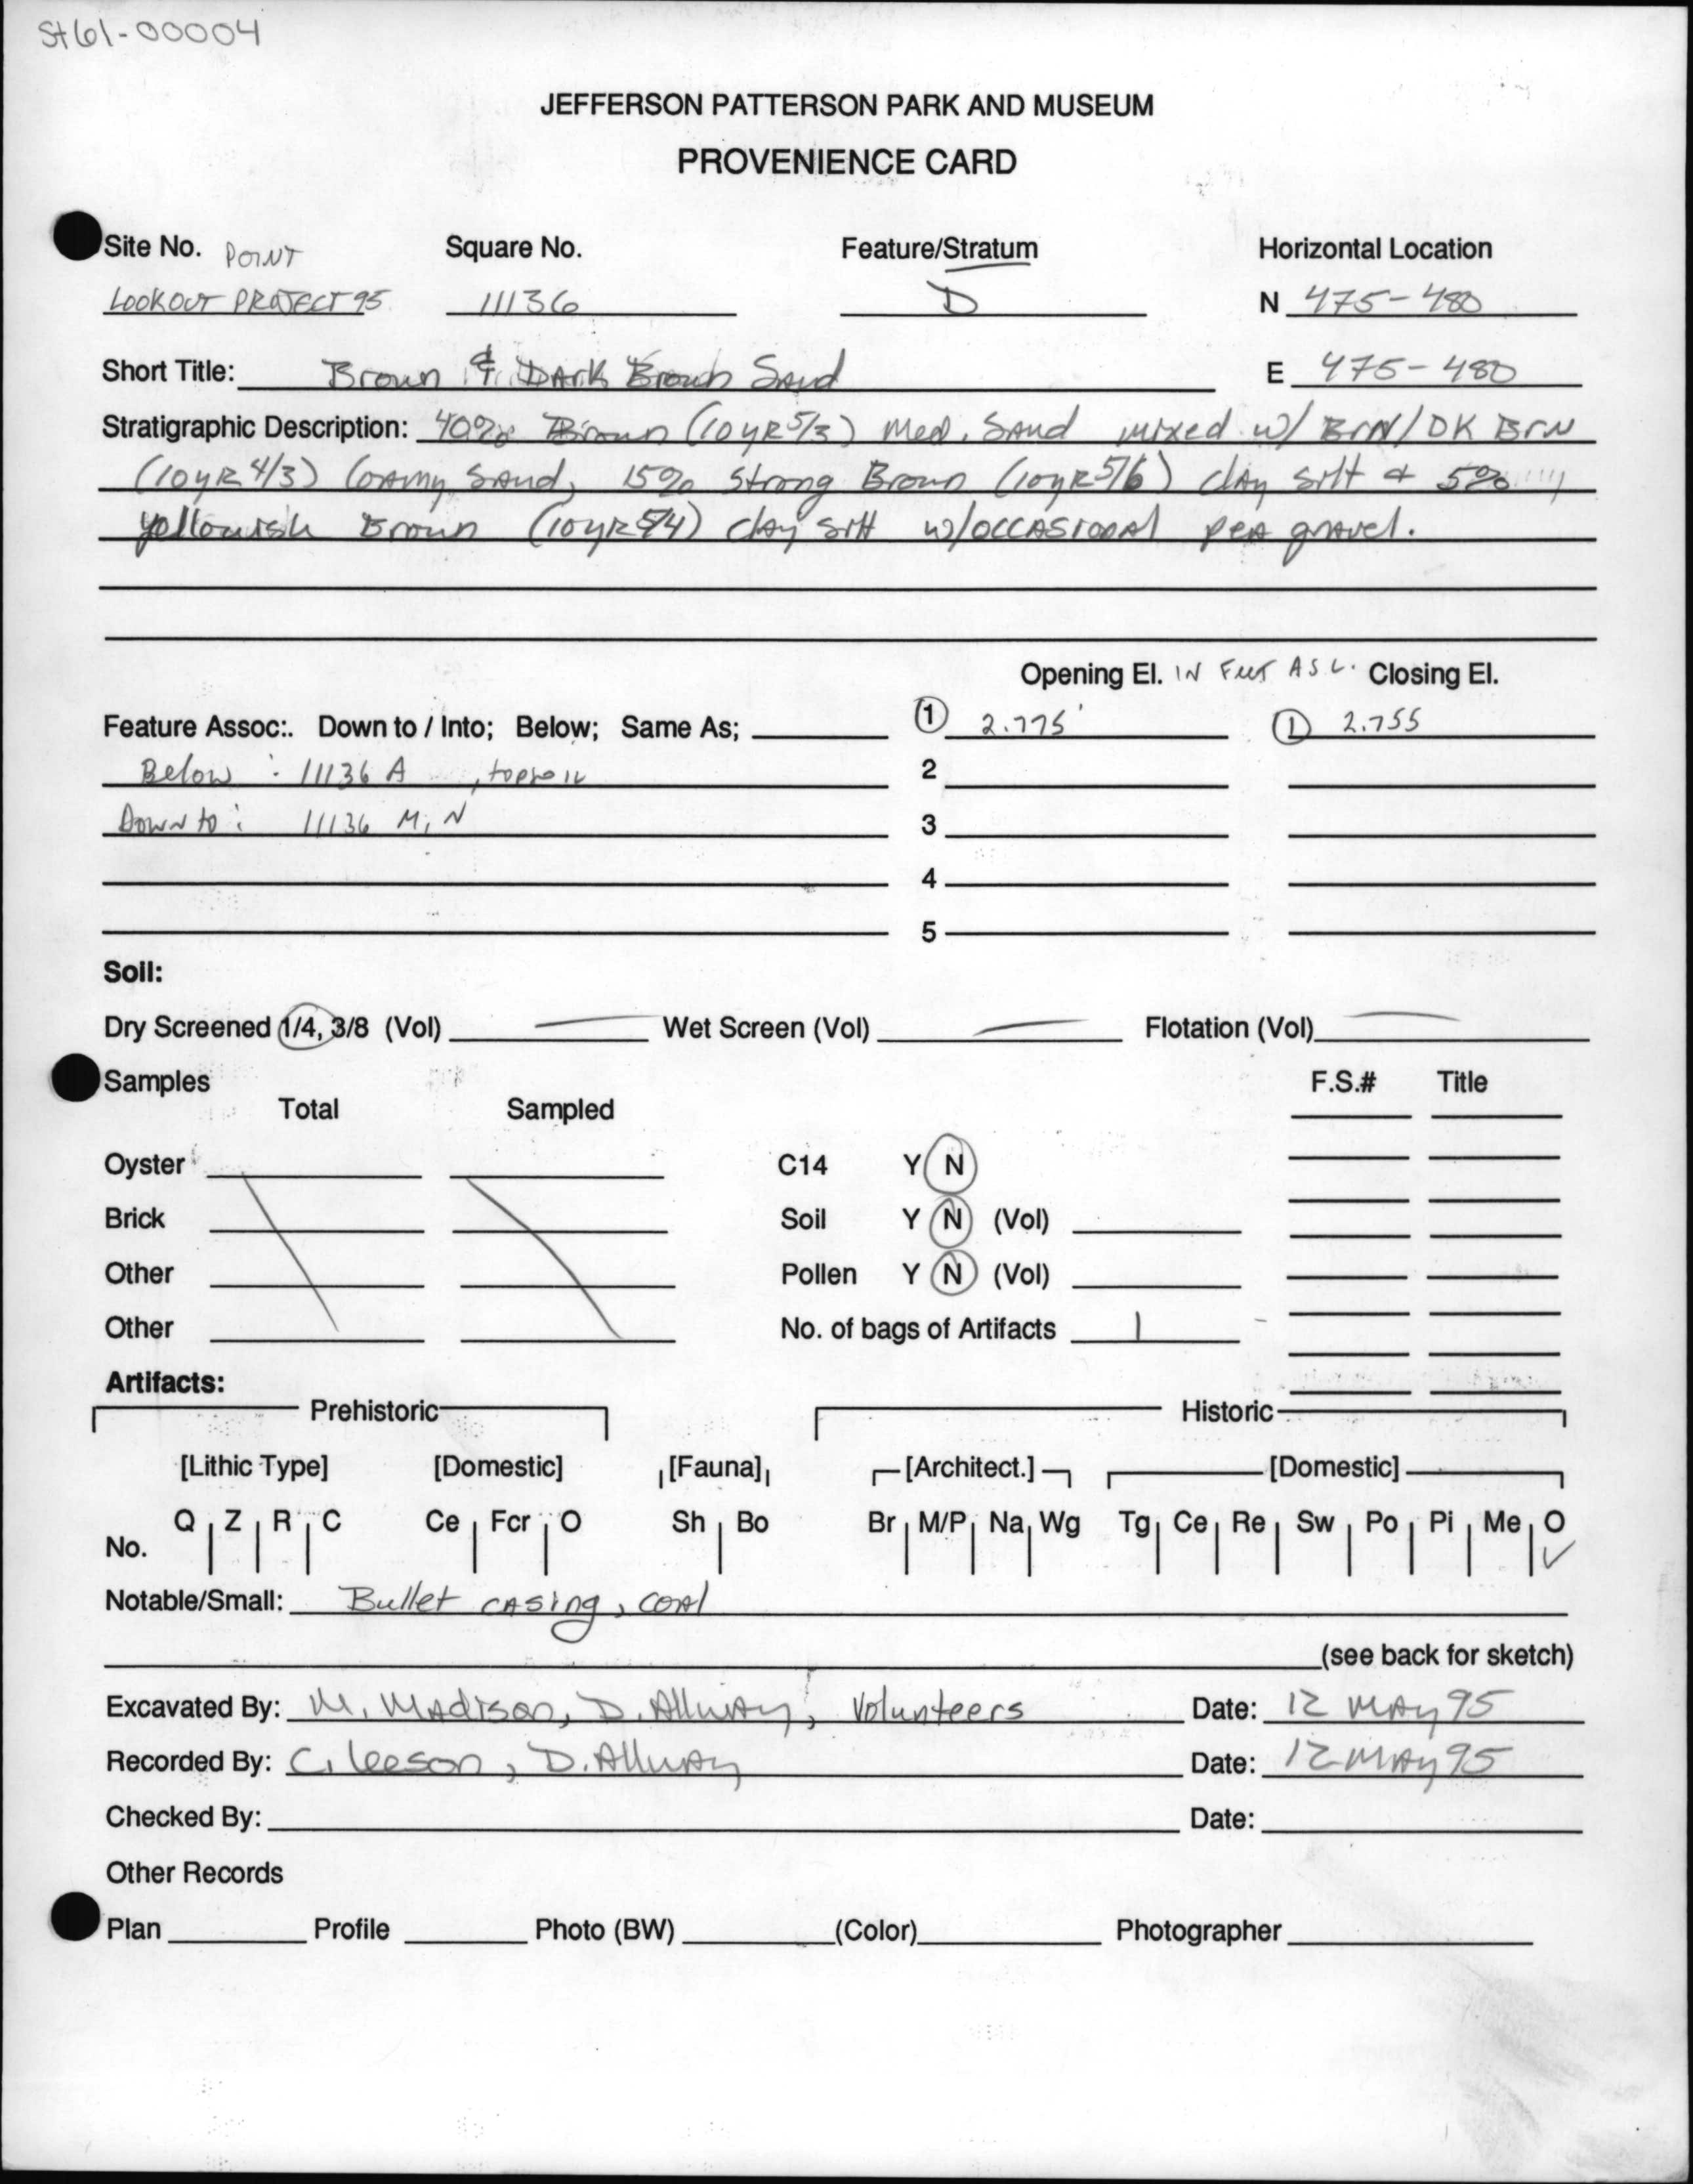 St61-00004
JEFFERSON PATTERSON PARK AND MUSEUM
PROVENIENCE CARD
Site No. POINT Square No. Feature/Stratum Horizontal Location
LOOKOUT PROJECT 95 11136 D N 475-480
Short Title: Brown & Dark Brown Sand E 475-480
Stratigraphic Description: 40% Brown (10YR5/3) Med. Sand mixed w/ BRN/DK BRN
(10YR 4/3) Loamy Sand, 15% Strong Brown (10YR5/6) clay silt & 5%
yellowish Brown (10YR5/4) clay silt w/occasional pea gravel.
Opening El. IN FEET ASL. Closing El.
Feature Assoc:. Down to / Into; Below; Same As; 1 2.775' 1 2.755
Below : 11136 A , topsoil 2
Down to : 11136 M, N 3
4
5
Soil:
Dry Screened 1/4, 3/8 (Vol) — Wet Screen (Vol) — Flotation (Vol) —
Samples F.S.# Title
Total Sampled
Oyster C14 Y N
Brick Soil Y N (Vol)
Other Pollen Y N (Vol)
Other No. of bags of Artifacts 1
Artifacts:
Prehistoric Historic
[Lithic Type] [Domestic] [Fauna] [Architect.] [Domestic]
Q Z R C Ce Fcr O Sh Bo Br M/P Na Wg Tg Ce Re Sw Po Pi Me O
No. ✓
Notable/Small: Bullet casing, coal
(see back for sketch)
Excavated By: M. Madison, D. Allway, Volunteers Date: 12 May 95
Recorded By: C. Leeson, D. Allway Date: 12 May 95
Checked By: Date:
Other Records
Plan Profile Photo (BW) (Color) Photographer